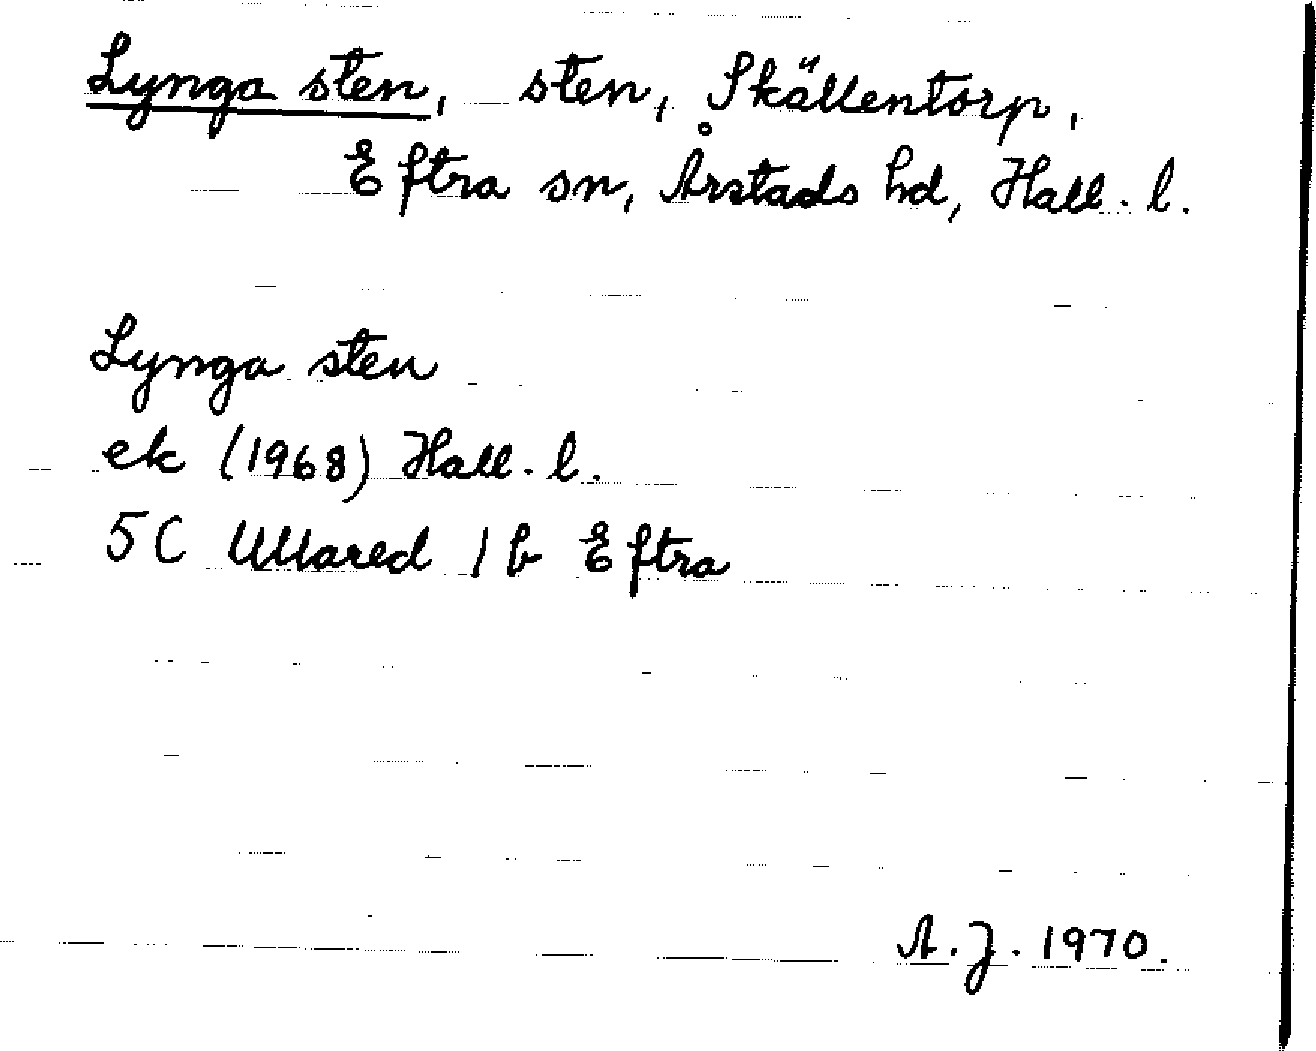 Lynga sten, sten, Skällentorp,
Eftra sn, Årstads hd, Hall. l.
Lynga sten
ek (1968) Hall. l.
5C Ullared 1 b Eftra
A.J. 1970.